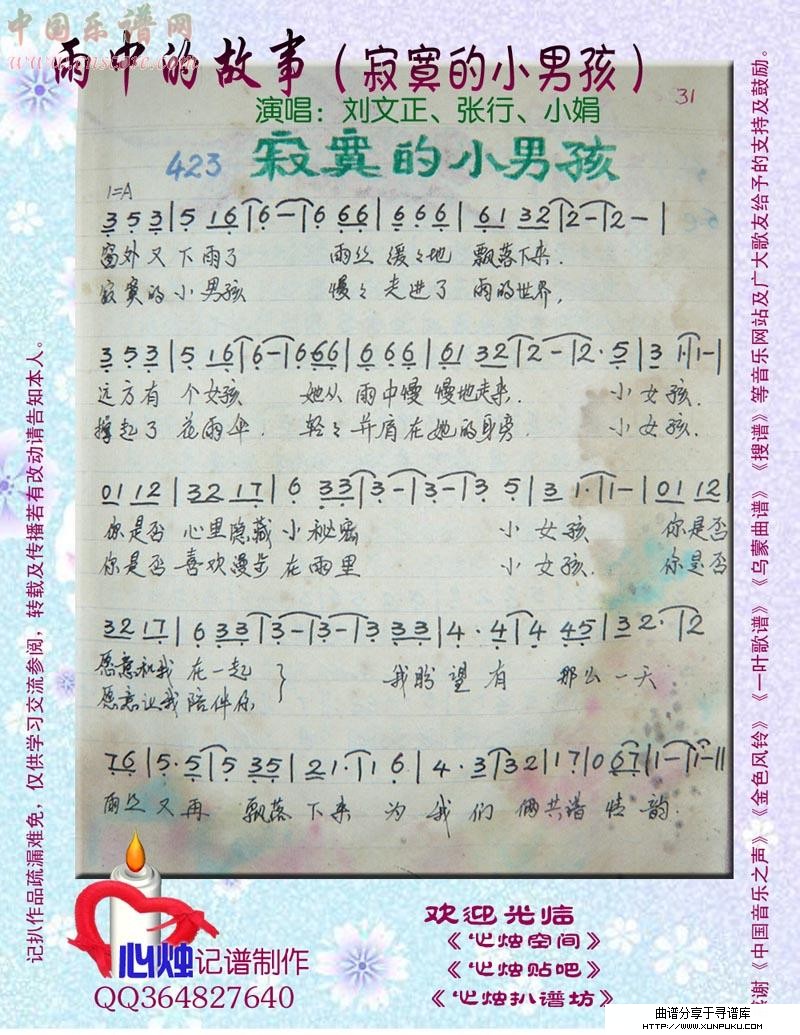 中国乐谱网
www.cnscore.com
雨中的故事（寂寞的小男孩）
31
演唱：刘文正、张行、小娟
423 寂寞的小男孩
1=A
3 5 3 | 5 16 | 6 - | 6 66 | 6 6 6 | 61 32 | 2 - | 2 - |
窗外又下雨了 雨丝缓々地 飘落下来.
寂寞的小男孩 慢々走进了 雨的世界,
3 5 3 | 5 16 | 6 - | 6 66 | 6 6 6 | 61 32 | 2 - | 2· 5 | 3 1· | 1 - |
远方有 个女孩 她从 雨中慢 慢地走来. 小女孩.
撑起了 花雨伞. 轻々并肩在她的身旁. 小女孩.
01 12 | 32 17 | 6 33 | 3 - | 3 - | 3 5 | 3 1· | 1 - | 01 12 |
你是否 心里隐藏 小秘密 小女孩 你是否
你是否 喜欢漫步 在雨里 小女孩. 你是否
32 17 | 6 33 | 3 - | 3 - | 3 33 | 4· 4 | 4 45 | 32· | 2
愿意和我 在一起 } 我盼望有 那么一天
愿意让我 陪伴你
76 | 5· 5 | 5 35 | 21· | 1 6 | 4· 3 | 3 2 | 1 7 | 0 67 | 1 - | 1 - ||
雨丝又再 飘落下来 为我们 俩共谱情韵.
记扒作品疏漏难免，仅供学习交流参阅，转载及传播若有改动请告知本人。
感谢《中国音乐之声》《金色风铃》《一叶歌谱》《乌蒙曲谱》《搜谱》等音乐网站及广大歌友给予的支持及鼓励。
心烛记谱制作
QQ364827640
欢迎光临
《心烛空间》
《心烛贴吧》
《心烛扒谱坊》
曲谱分享于寻谱库
HTTP://WWW.XUNPUKU.COM